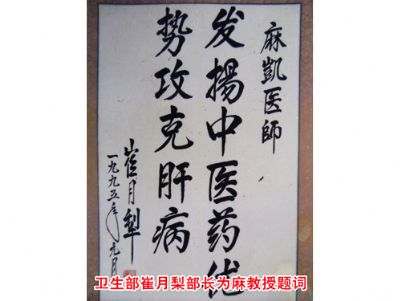 麻凯医師
发揚中医药优
势攻克肝病
崔月犁
一九九五年元月
卫生部崔月梨部长为麻教授题词